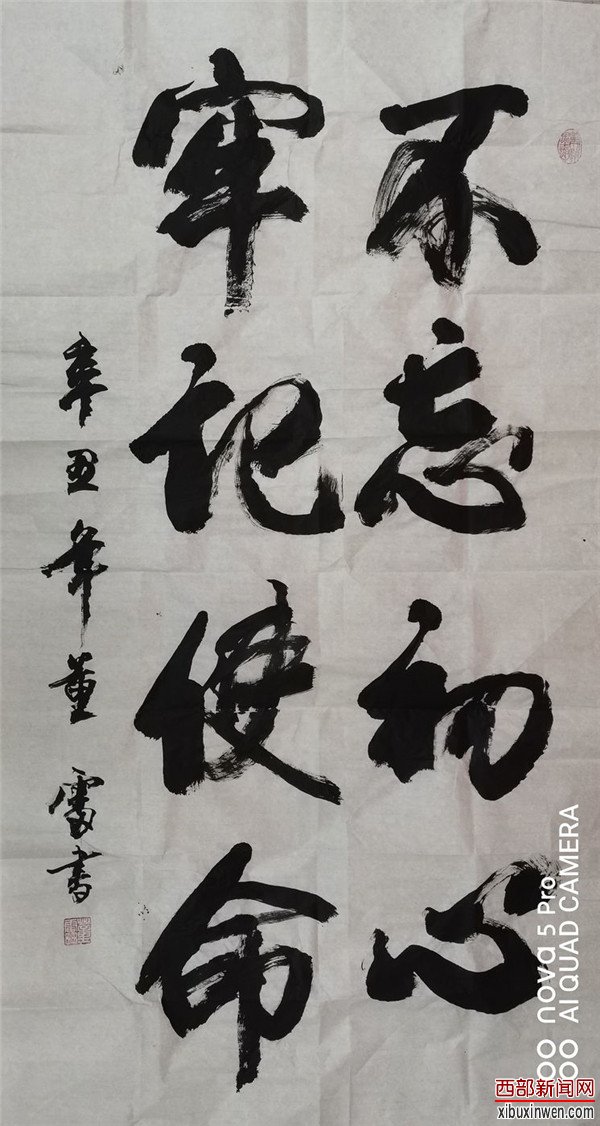 不忘初心
牢记使命
辛丑年董雷书
nova 5 Pro
AI QUAD CAMERA
西部新闻网
xibuxinwen.com